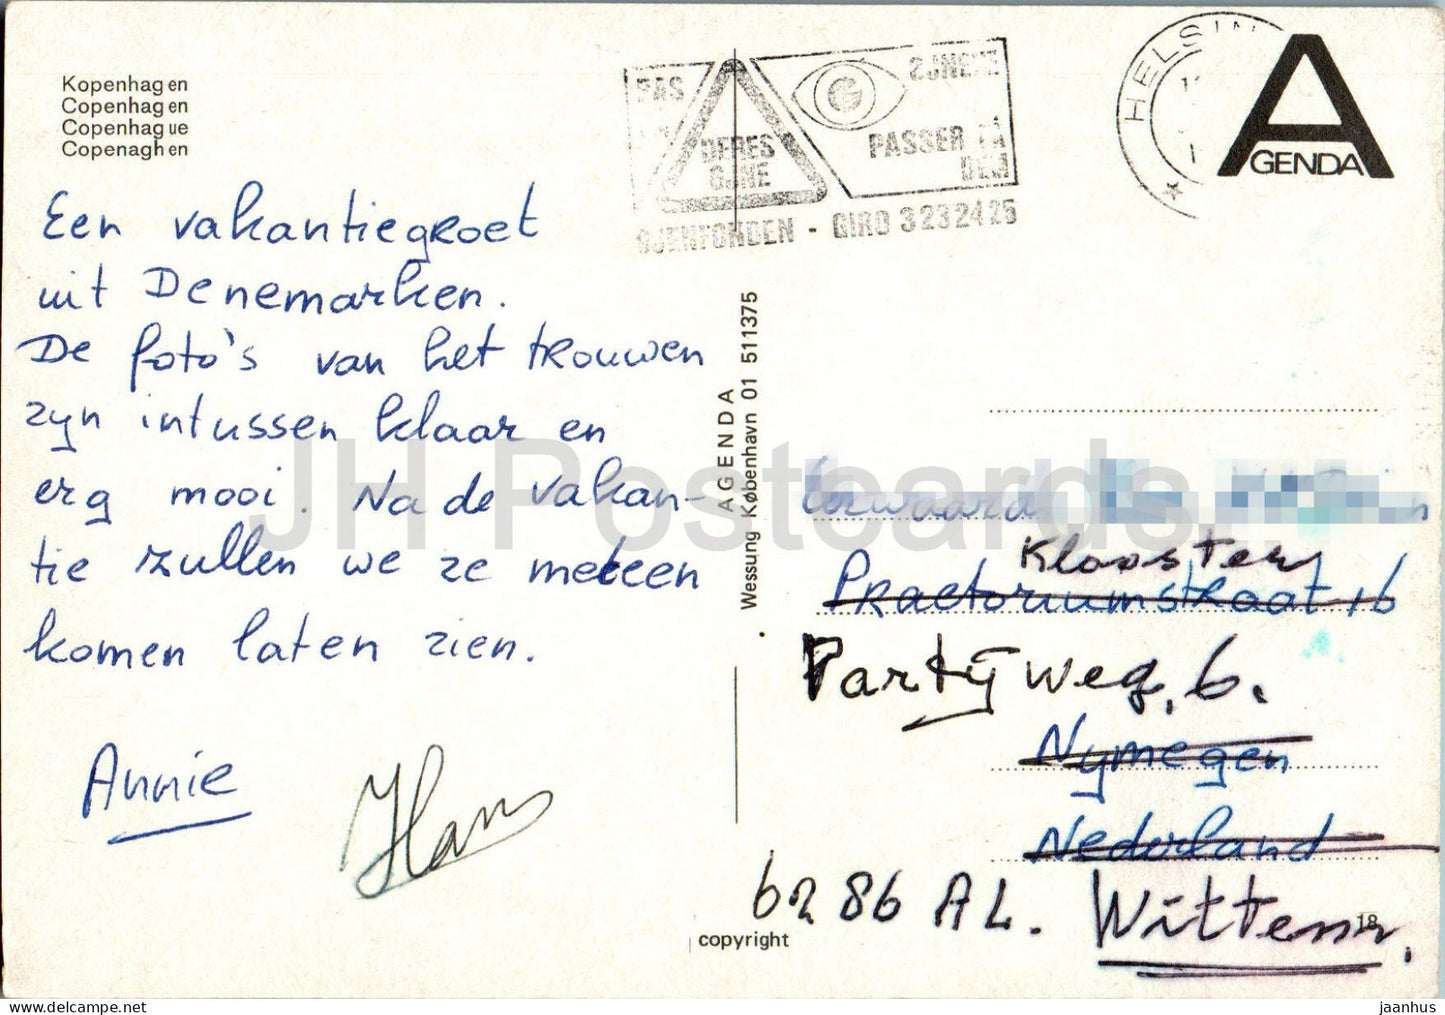 Kopenhagen
Copenhagen
Copenhague
Copenaghen
PAS
DERES
ØJNE
ØJNENE
PASSER PÅ
DEM
ØJENFONDEN - GIRO 3 23 24 25
HELSIN
AGENDA
Een vakantiegroet
uit Denemarken.
De foto's van het trouwen
zyn intussen klaar en
erg mooi. Na de vakan-
tie zullen we ze meteen
komen laten zien.
Annie
Hans
AGENDA
Wessung København 01 511375
Klooster
Praetoriumstraat 16
Partijweg. 6.
Nymegen
Nederland
6286 AL. Wittem.
18
copyright
JH Postcards
jaanhus @ www.delcampe.net